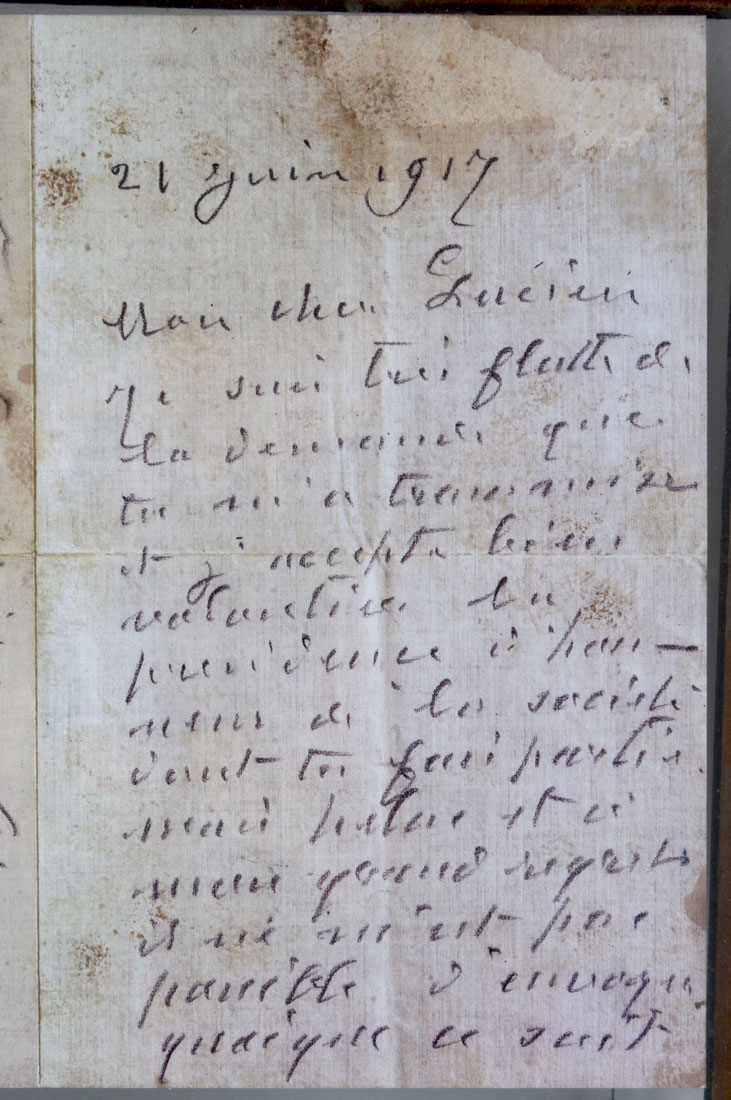 21 juin 1917
Mon cher Lucien
Je suis très flatté de
la demande que
tu m'a transmise
et j'accepte bien
volontier la
présidence d'hon-
neur de la société
dont tu fais partie.
mais helas et à
mon grand regrets
il ne m'est pas
possible d'envoyer
quoique ce soit